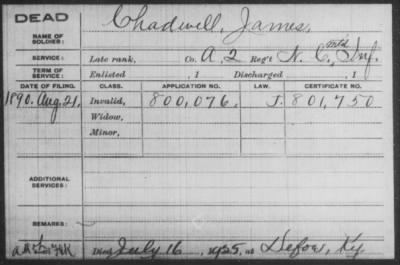 DEAD
NAME OF SOLDIER: Chadwell, James.
SERVICE: Late rank, Co. A, 2 Reg't N. C. Mtd Inf.
TERM OF SERVICE: Enlisted , 1 Discharged , 1
DATE OF FILING. CLASS. APPLICATION NO. LAW. CERTIFICATE NO.
1890. Aug. 21. Invalid, 800,076. J. 801,750
Widow,
Minor,
ADDITIONAL SERVICES:
REMARKS:
Died July 16, 1925, at Defoe, Ky